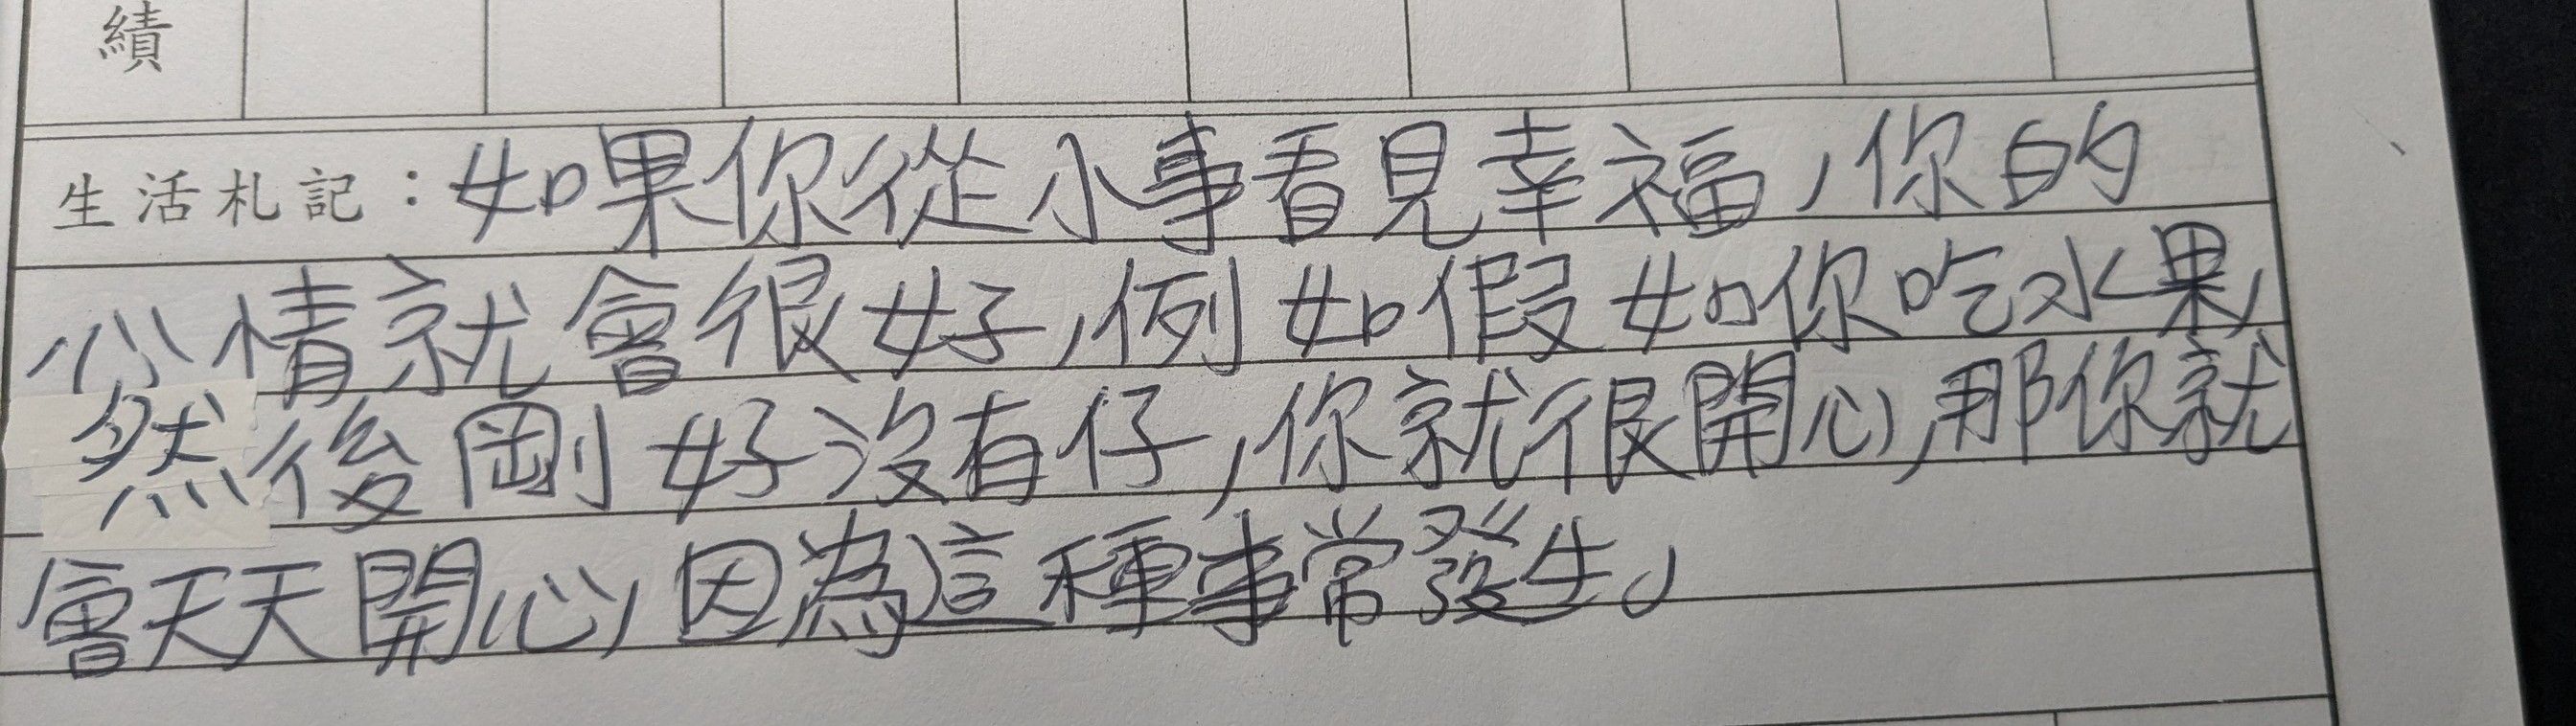 績
生活札記：如果你從小事看見幸福，你的
心情就會很好，例如假如你吃水果，
然後剛好沒有仔，你就很開心，那你就
會天天開心，因為這種事常發生。